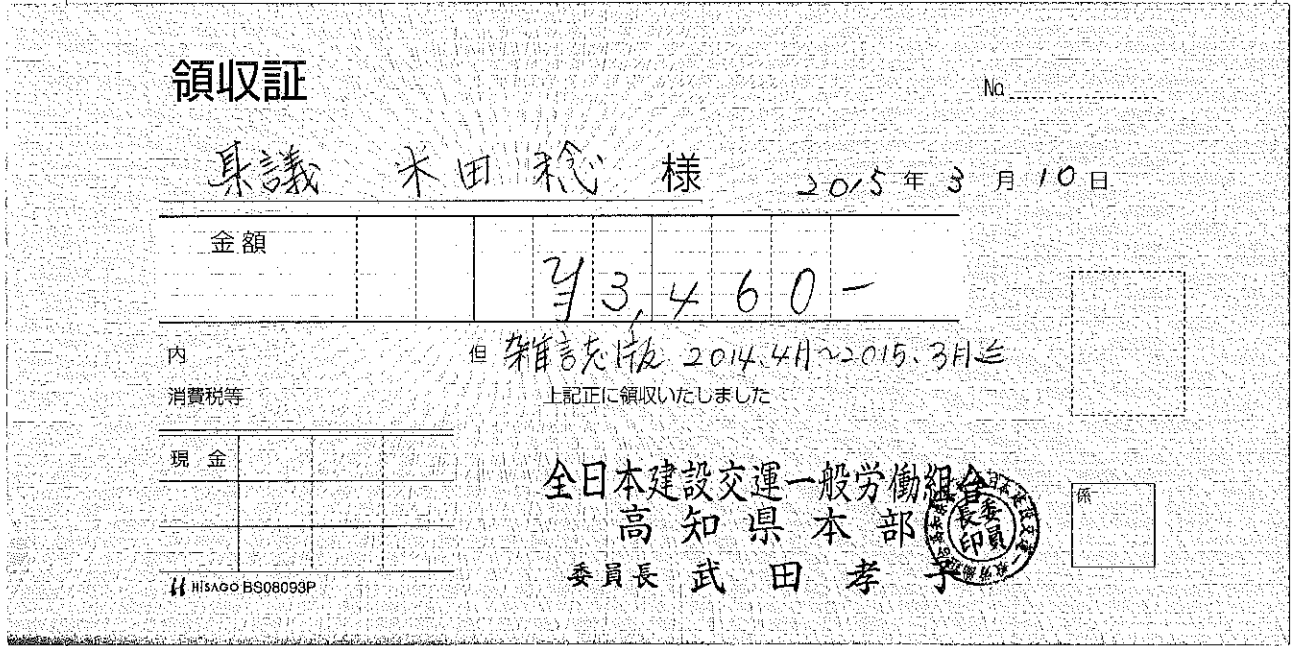 領収証
No.
県議 米田稔 様
2015年3月10日
金額
¥3,460-
内
但 雑誌版 2014.4月~2015.3月迄
消費税等
上記正に領収いたしました
現金
全日本建設交運一般労働組合
高知県本部
委員長 武田孝子
委員長印
係
HISAGO BS08093P